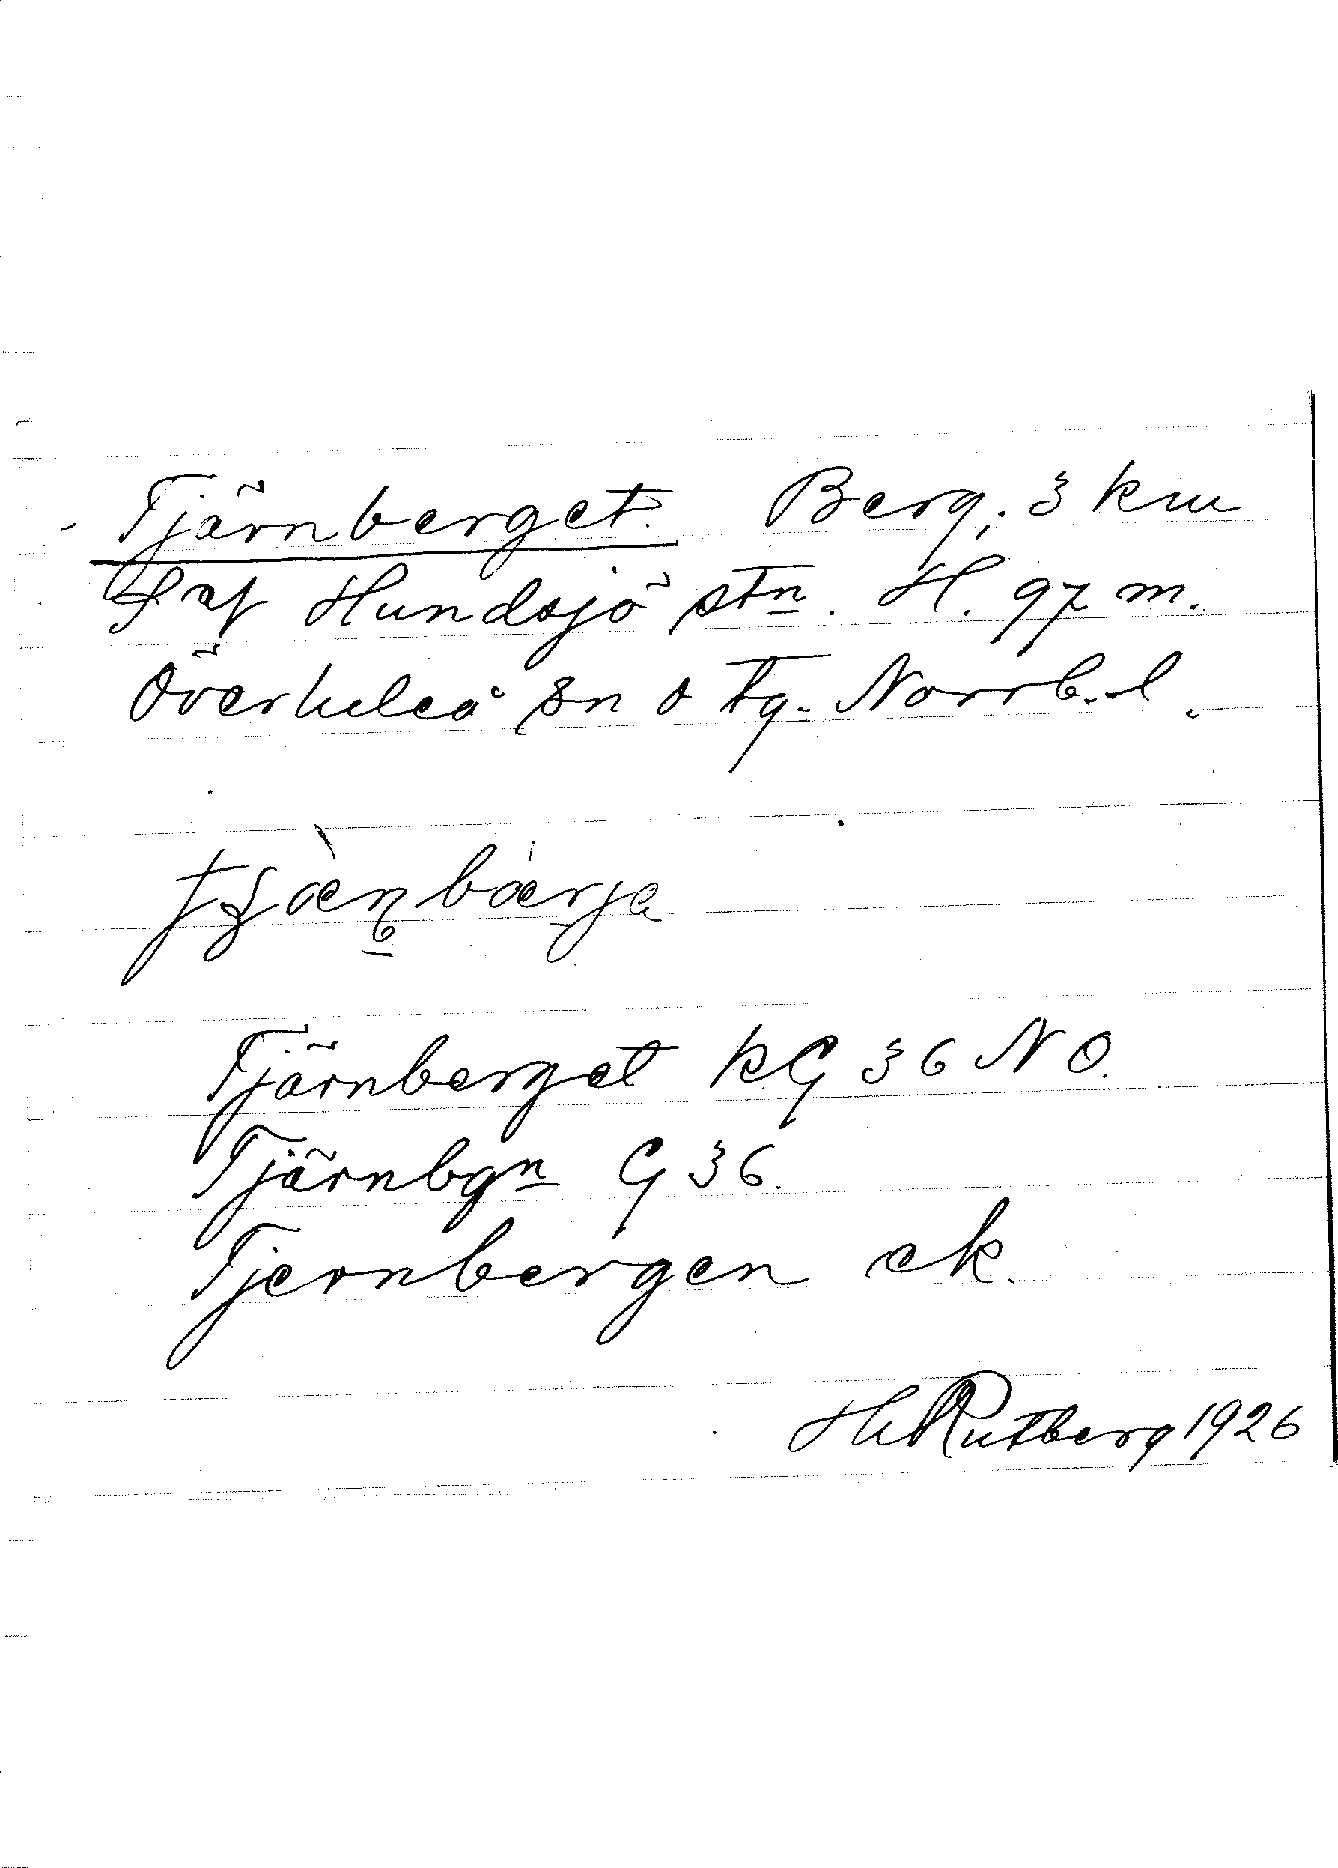 Tjärnberget. Berg, 3 km
S af Hundsjö stn. H. 97 m.
Överluleå sn o tg. Norrb. l.
Tjärnberget kG 36 NO.
Tjärnbgn G 36.
Tjernbergen ek.
H Rutberg 1926